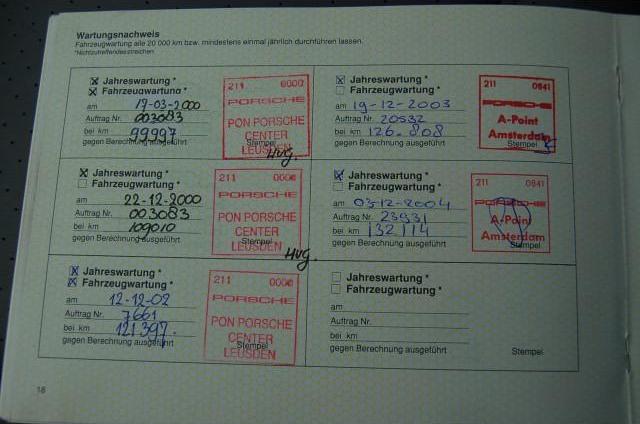 Wartungsnachweis
Fahrzeugwartung alle 20 000 km bzw. mindestens einmal jährlich durchführen lassen.
*Nichtzutreffendes streichen
Jahreswartung *
Fahrzeugwartung *
am 17-03-2000
Auftrag Nr. 003083
bei km 99997
gegen Berechnung ausgeführt
Stempel
211 0000
PORSCHE
PON PORSCHE
CENTER
LEUSDEN
Jahreswartung *
Fahrzeugwartung *
am 22-12-2000
Auftrag Nr. 003083
bei km 109010
gegen Berechnung ausgeführt
Stempel
211 0000
PORSCHE
PON PORSCHE
CENTER
LEUSDEN
Jahreswartung *
Fahrzeugwartung *
am 12-12-02
Auftrag Nr. 7661
bei km 121397.
gegen Berechnung ausgeführt
Stempel
211 0000
PORSCHE
PON PORSCHE
CENTER
LEUSDEN
Jahreswartung *
Fahrzeugwartung *
am 19-12-2003
Auftrag Nr. 20532
bei km 126.808
gegen Berechnung ausgeführt
Stempel
211 0841
PORSCHE
A-Point
Amsterdam
Jahreswartung *
Fahrzeugwartung *
am 03-12-2004
Auftrag Nr. 23931
bei km 132114
gegen Berechnung ausgeführt
Stempel
211 0841
PORSCHE
A-Point
Amsterdam
Jahreswartung *
Fahrzeugwartung *
am
Auftrag Nr.
bei km
gegen Berechnung ausgeführt
Stempel
18